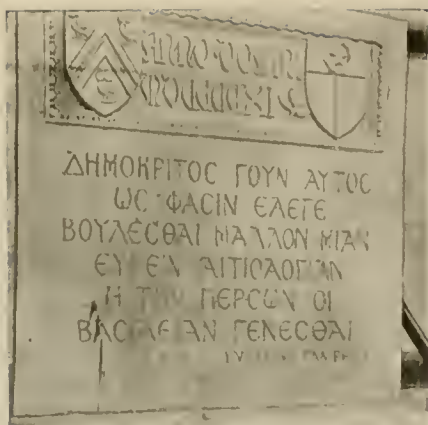 ΔΗΜΟΚΡΙΤΟϹ ΓΟΥΝ ΑΥΤΟϹ
ΩϹ ΦΑϹΙΝ ΕΛΕΓΕ
ΒΟΥΛΕϹΘΑΙ ΜΑΛΛΟΝ ΜΙΑΝ
ΕΥΡΕΙΝ ΑΙΤΙΟΛΟΓΙΑΝ
Η ΤΗΝ ΠΕΡϹΩΝ ΟΙ
ΒΑϹΙΛΕΙΑΝ ΓΕΝΕϹΘΑΙ